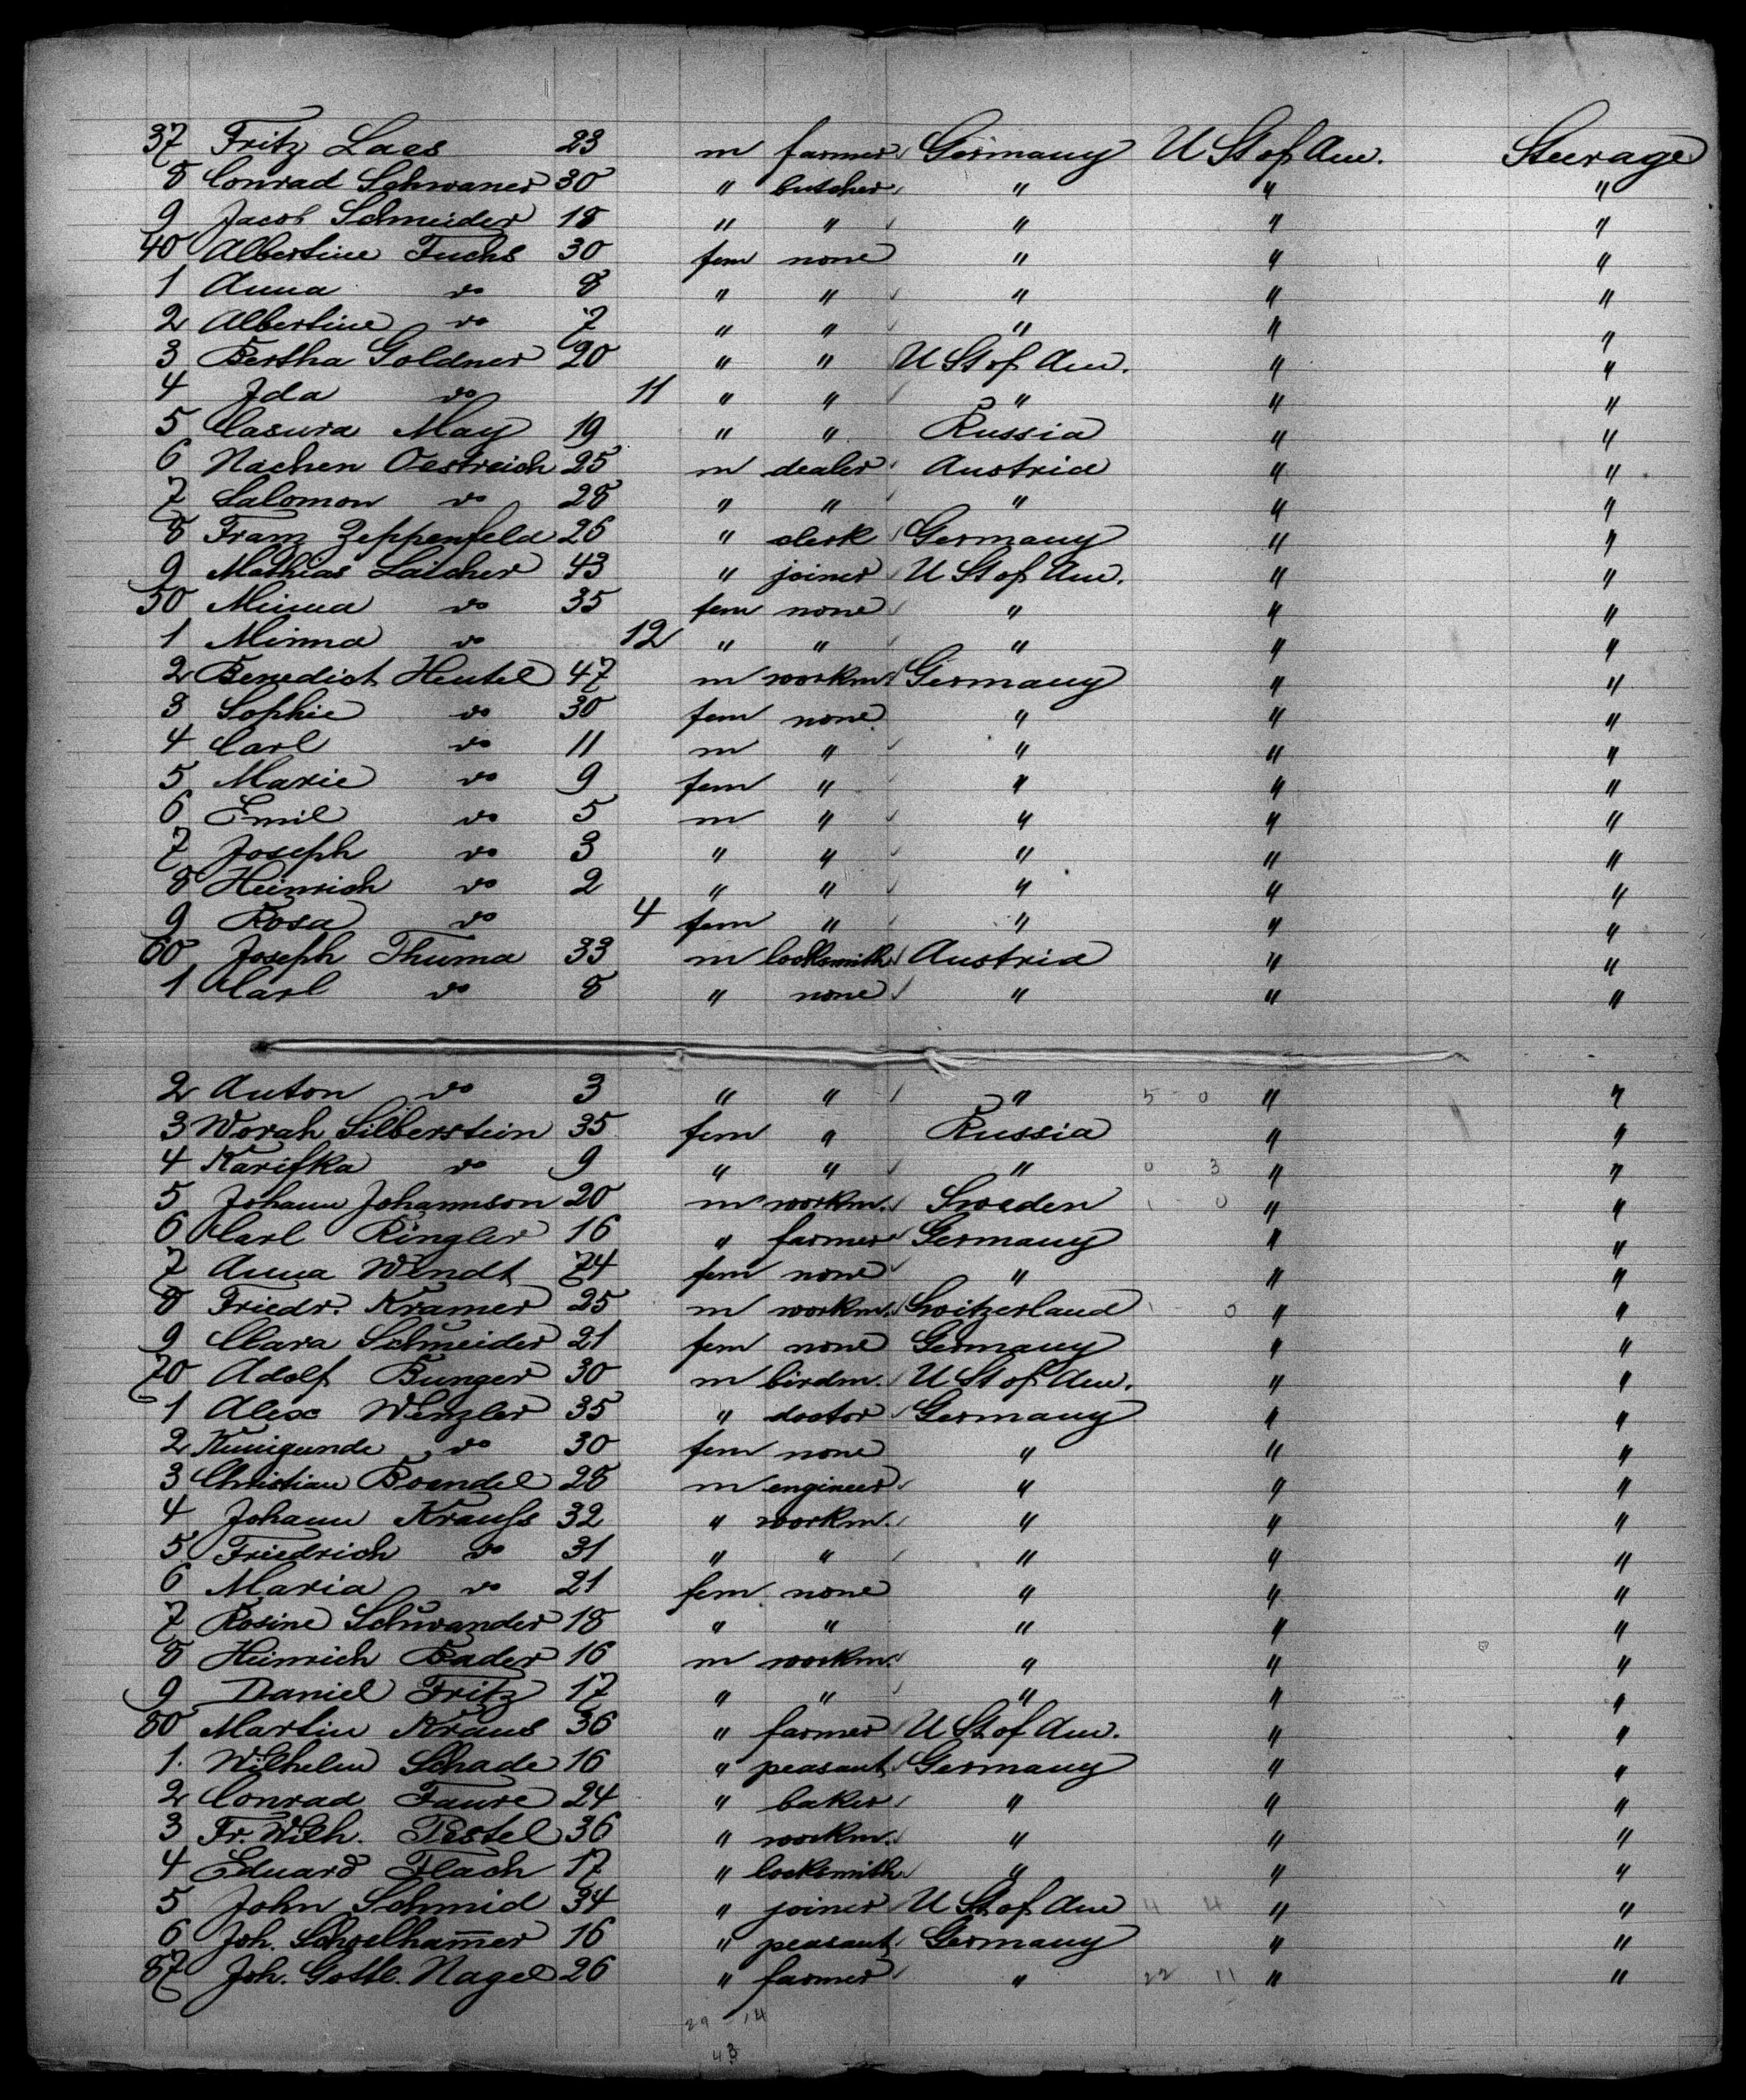 37 Fritz Laes 23 m farmer Germany U St of Am. Steerage
8 Conrad Schwaner 30 " butcher " " "
9 Jacob Schneider 18 " " " " "
40 Albertine Fuchs 30 fem none " " "
1 Anna do 8 " " " " "
2 Albertine do 7 " " " " "
3 Bertha Goldner 20 " " U St of Am. " "
4 Ida do 11 " " " " "
5 Casura May 19 " " Russia " "
6 Nachen Oestreich 25 m dealer Austria " "
7 Salomon do 28 " " " " "
8 Franz Zeppenfeld 26 " clerk Germany " "
9 Mathias Laicher 43 " joiner U St of Am. " "
50 Minna do 35 fem none " " "
1 Minna do 12 " " " " "
2 Benedict Hentel 47 m workm. Germany " "
3 Sophie do 30 fem none " " "
4 Carl do 11 m " " " "
5 Marie do 9 fem " " " "
6 Emil do 5 m " " " "
7 Joseph do 3 " " " " "
8 Heinrich do 2 " " " " "
9 Rosa do 4 fem " " " "
60 Joseph Thuma 33 m locksmith Austria " "
1 Carl do 8 " none " " "
2 Anton do 3 " " " 5 - 0 " "
3 Worah Silberstein 35 fem " Russia " "
4 Karifka do 9 " " " 0 3 " "
5 Johann Johannson 20 m workm. Sweden 1 - 0 " "
6 Carl Ringler 16 " farmer Germany " "
7 Anna Wendt 74 fem none " " "
8 Friedr. Kramer 25 m workm. Switzerland 1 - 0 " "
9 Clara Schneider 21 fem none Germany " "
70 Adolf Bunger 30 m birdm. U St of Am. " "
1 Alex Wenzler 35 " doctor Germany " "
2 Kunigunde do 30 fem none " " "
3 Christian Brendel 28 m engineer " " "
4 Johann Krauss 32 " workm. " " "
5 Friedrich do 31 " " " " "
6 Maria do 21 fem. none " " "
7 Rosine Schwander 18 " " " " "
8 Heinrich Bader 16 m workm. " " "
9 Daniel Fritz 17 " " " " "
80 Martin Kraus 36 " farmer U St of Am. " "
1. Wilhelm Schade 16 " peasant Germany " "
2 Conrad Faure 24 " baker " " "
3 Fr. Wilh. Pistel 36 " workm. " " "
4 Eduard Flach 17 " locksmith " " "
5 John Schmid 34 " joiner U St of Am 4 4 " "
6 Joh. Schoelham̄er 16 " peasant Germany " "
87 Joh. Gottl. Nagel 26 " farmer " 22 11 " "
29 - 14
43